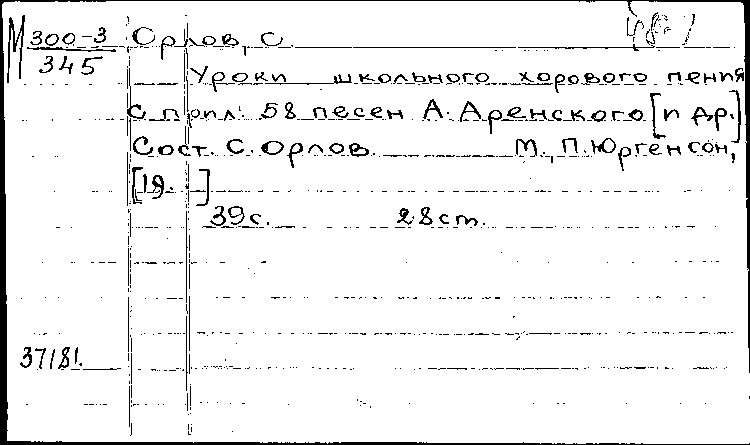 М 300-3 Орлов, С.
345
Уроки школьного хорового пения
с прил: 58 песен А. Аренского [и др.]
Сост. С. Орлов. М., П. Юргенсон,
[19. ]
39с. 28 см.
37181.